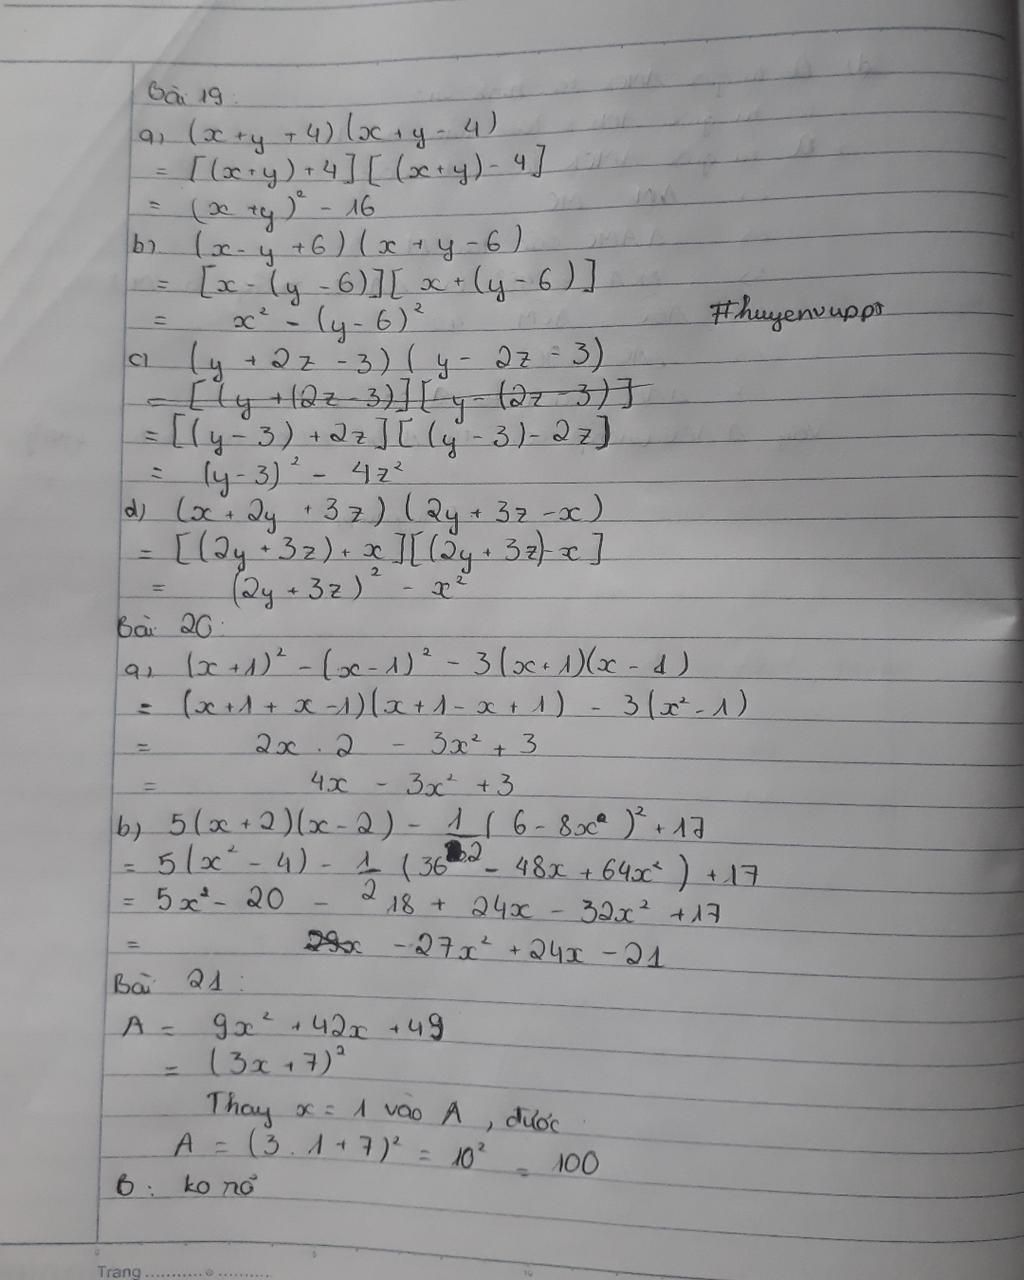 Bài 19:
a, (x+y+4)(x+y-4)
= [(x+y)+4][(x+y)-4]
= (x+y)² - 16
b) (x-y+6)(x+y-6)
= [x-(y-6)][x+(y-6)]
= x² - (y-6)²
#huyenvuppr
c) (y+2z-3)(y-2z-3)
= [(y+(2z-3)][y-(2z-3)]
= [(y-3)+2z][(y-3)-2z]
= (y-3)² - 4z²
d) (x+2y+3z)(2y+3z-x)
= [(2y+3z)+x][(2y+3z)-x]
= (2y+3z)² - x²
Bài 20:
a, (x+1)² - (x-1)² - 3(x+1)(x-1)
= (x+1+x-1)(x+1-x+1) - 3(x²-1)
= 2x.2 - 3x² + 3
= 4x - 3x² + 3
b) 5(x+2)(x-2) - 1/2 (6-8x)² + 17
= 5(x²-4) - 1/2 (36 - 48x + 64x²) + 17
= 5x² - 20 - 18 + 24x - 32x² + 17
= -27x² + 24x - 21
Bài 21:
A = 9x² + 42x + 49
= (3x+7)²
Thay x = 1 vào A, được
A = (3.1+7)² = 10² = 100
B: ko rõ
Trang